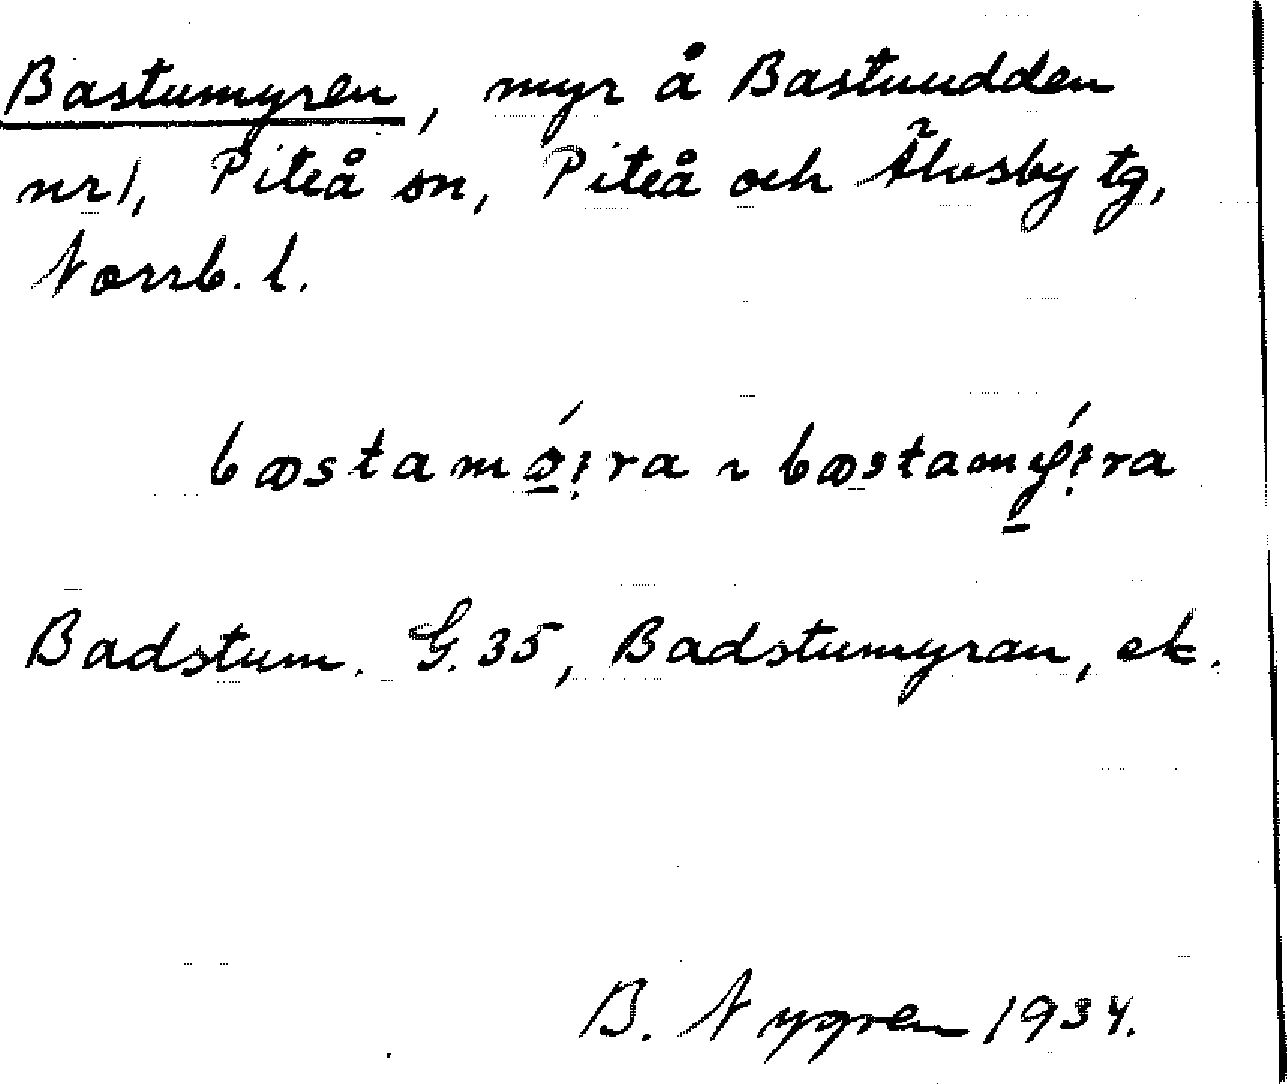 Bastumyren, myr å Bastuudden
nr 1, Piteå sn, Piteå och Älvsby tg,
Norrb. l.
Badstum. G.35, Badstumyran, ek.
B. Nygren 1934.